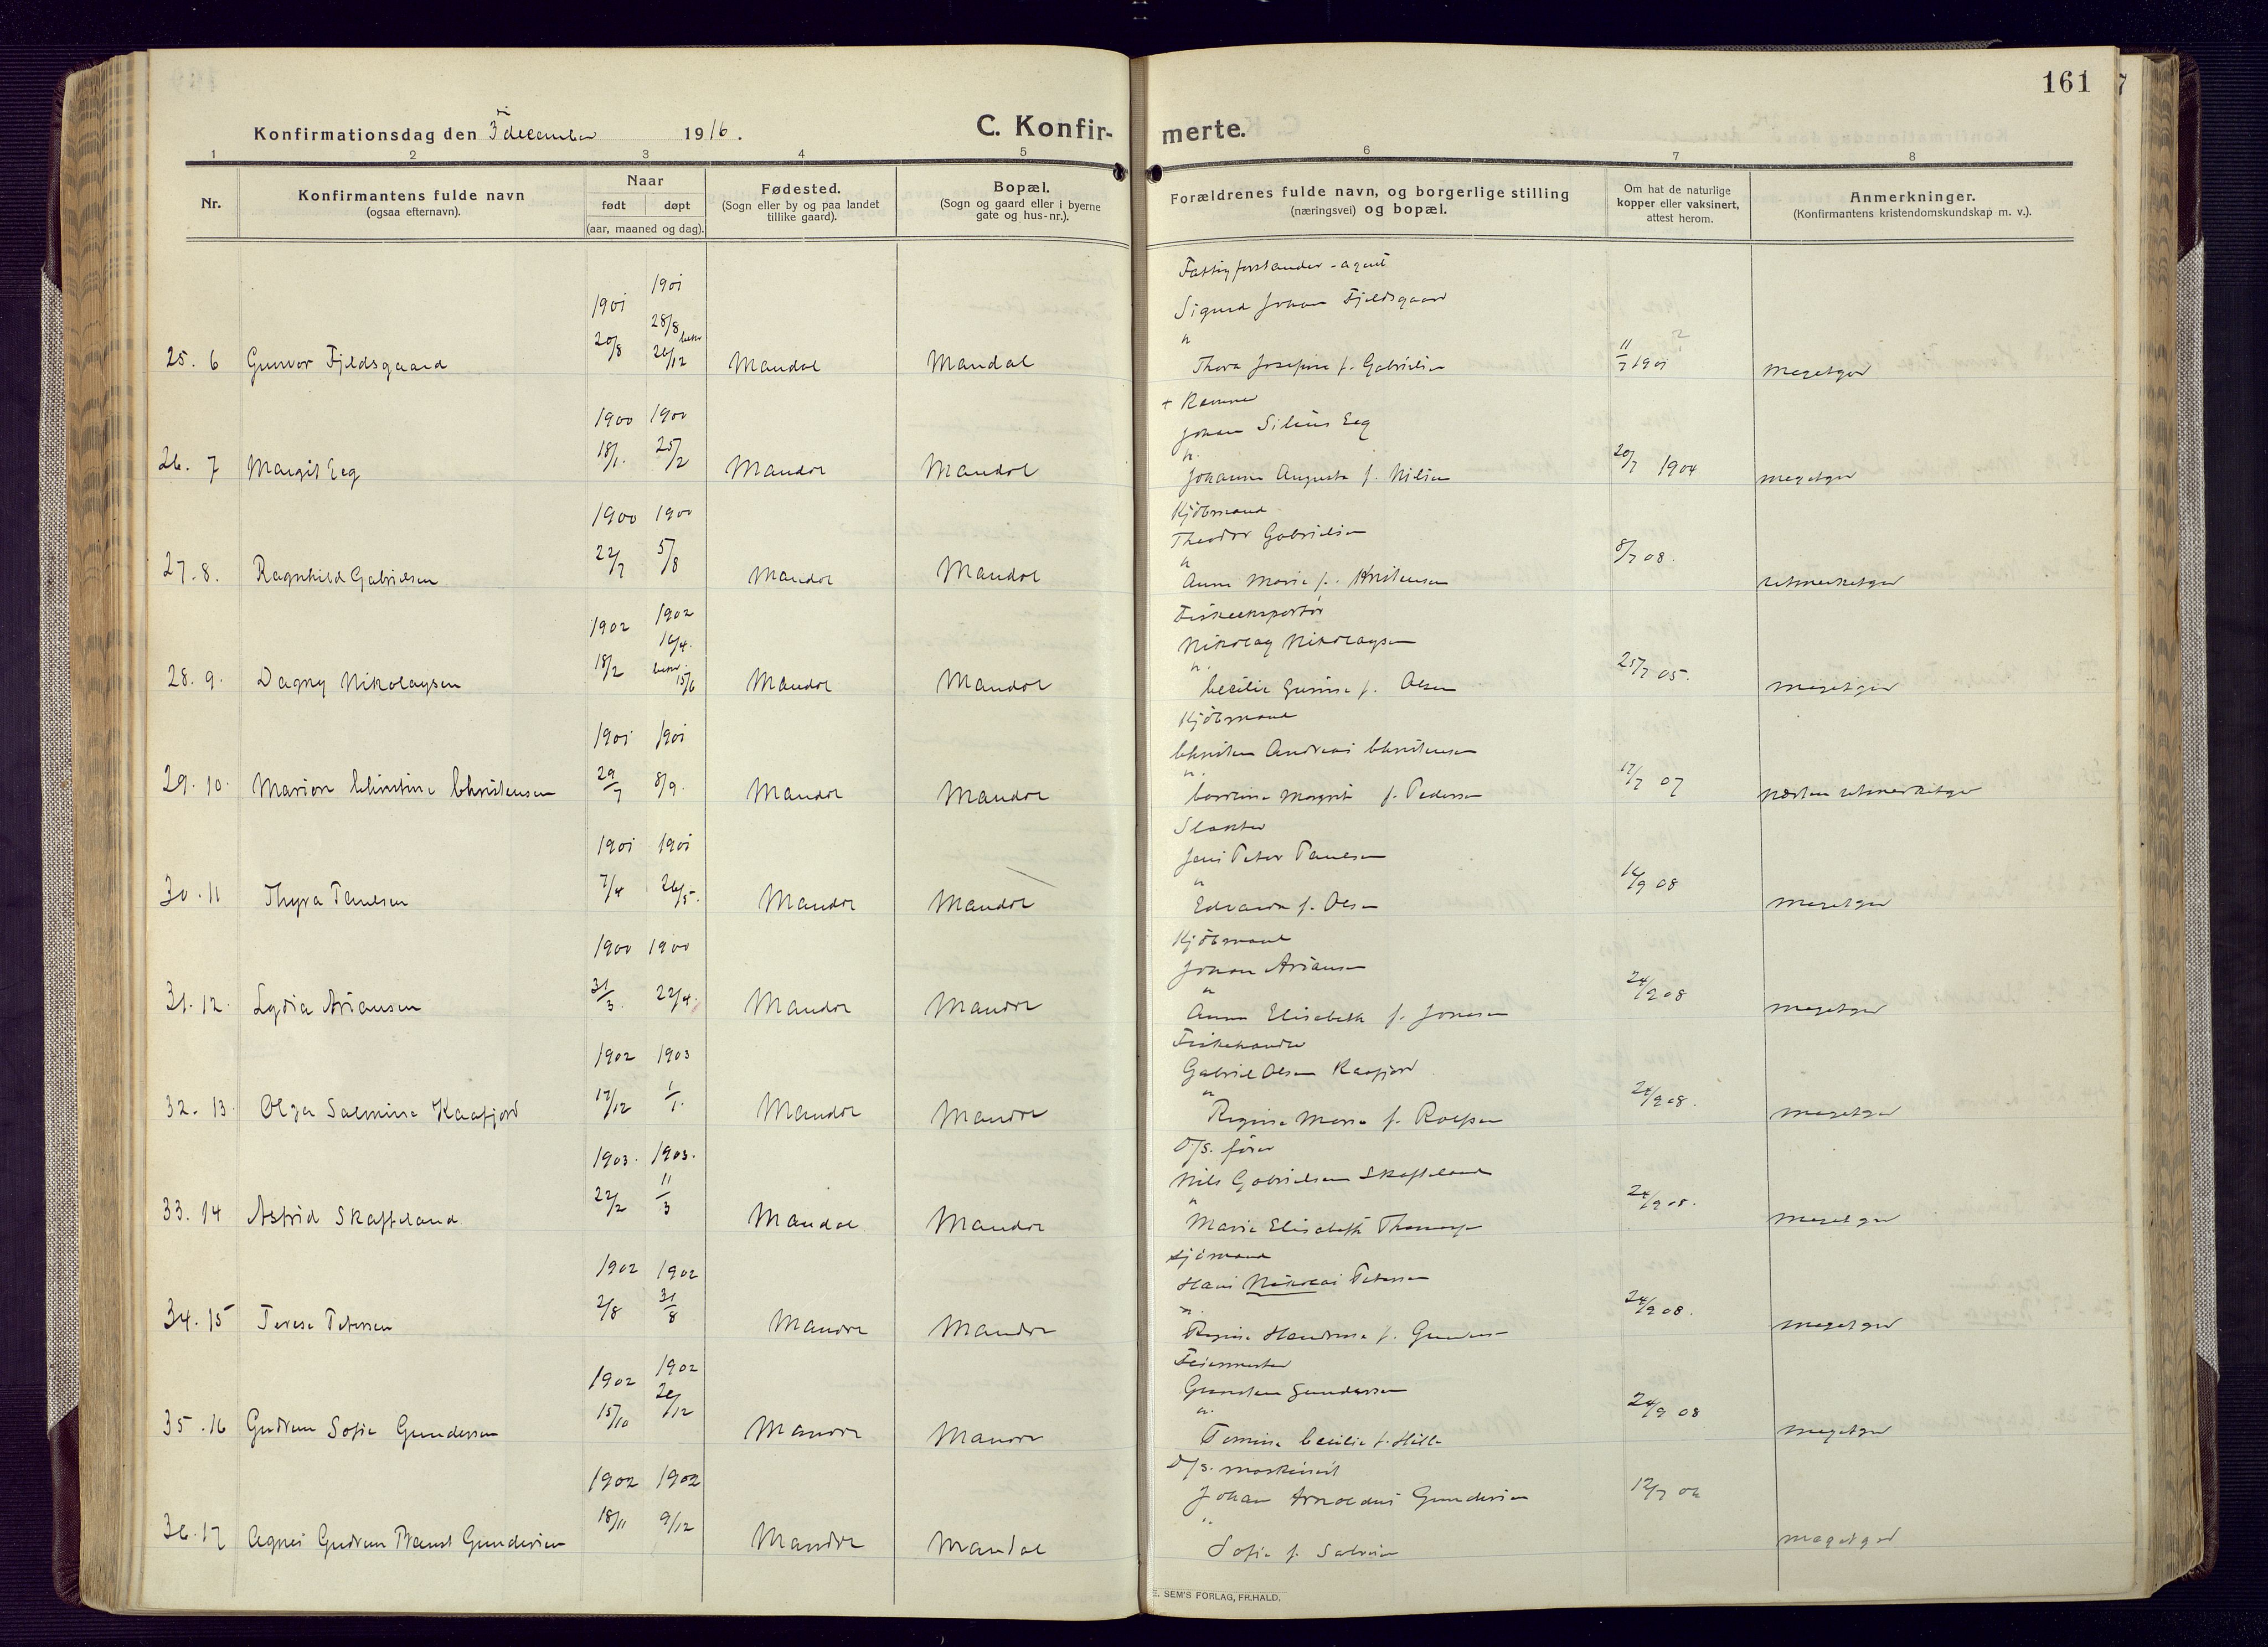 161
Konfirmationsdag den 3 december 1916.
C. Konfirmerte.
1 2 3 4 5 6 7 8
Nr. Konfirmantens fulde navn (ogsaa efternavn). Naar født døpt (aar, maaned og dag). Fødested. (Sogn eller by og paa landet tillike gaard). Bopæl. (Sogn og gaard eller i byerne gate og hus-nr.). Forældrenes fulde navn, og borgerlige stilling (næringsvei) og bopæl. Om hat de naturlige kopper eller vaksinert, attest herom. Anmerkninger. (Konfirmantens kristendomskundskap m. v.).
Fattigforstander - agent
1901 1901
Sigurd Johan Fjeldsgaard
20/8 28/8
25. 6 Gunvor Fjeldsgaard Mandal Mandal Thora Josefine f. Gabrielsen 1901 megetgod
+ Rømmer
1900 1900
Johan Eeg
18/1. 25/2
26. 7 Margit Eeg Mandal Mandal Johanne Augusta f. Nilsen 20/7 1904 megetgod
1900 1900 Kjöbmand
Theodor Gabrielsen
22/7 5/8 8/7 08.
27. 8. Ragnhild Gabrielsen Mandal Mandal Anna Marie f. Kristensen utmerketgod
Fiskeeksportør
1902 1902
Nikolay Nikolaysen
18/2 16/4. bekr. 15/6 25/7 05.
28. 9. Dagny Nikolaysen Mandal Mandal Cecilie Gurine f. Olsen megetgod
Kjöbmand
1901 1901
Christen Andreas Christensen
29/7 8/9. 17/7 07
29. 10. Marion Christine Christensen Mandal Mandal Margrete f. Pedersen næsten utmerketgod
Slakter
1901 1901
Jens Peter Paulsen
7/4 26/5. 16/9 08
30. 11 Thyra Paulsen Mandal Mandal Edvarda f. Olsen megetgod
1900 1900 Kjöbmand
Johan Ariansen
31/3. 22/4. 24/9 08
31. 12. Lydia Ariansen Mandal Mandal Anna Elisabeth f. Jonassen megetgod
Fiskehandler
1902 1903
Gabriel Olsen Kaafjord
17/12 1/1. 24/9 08.
32. 13. Olga Salmine Kaafjord Mandal Mandal Regine Marie f. Rolfsen megetgod
D/S. fører
1903. 1903.
Nils Gabrielsen Skaffeland
22/2 11/3 24/9 08.
33. 14 Astrid Skaffeland Mandal Mandal Marie Elisabeth Thomasen megetgod
Sjömand
1902 1902
Hans Nikolai Petersen
2/8 31/8 24/9 08.
34. 15 Terese Petersen Mandal Mandal Regine f. megetgod
Feiermester
1902 1902
Gunsten Gundersen
15/10 26/12 24/9 08
35. 16 Gudrun Sofie Gundersen Mandal Mandal Tomine Cecilie f. Hille megetgod
D/S. maskinist
1902 1902
Johan Arnoldus Gundersen
18/11 9/12 12/7 06
36. 17 Agnes Gudrun Gundersen Mandal Mandal Sofie f. Salvesen megetgod
E. SEM'S FORLAG, FR.HALD.